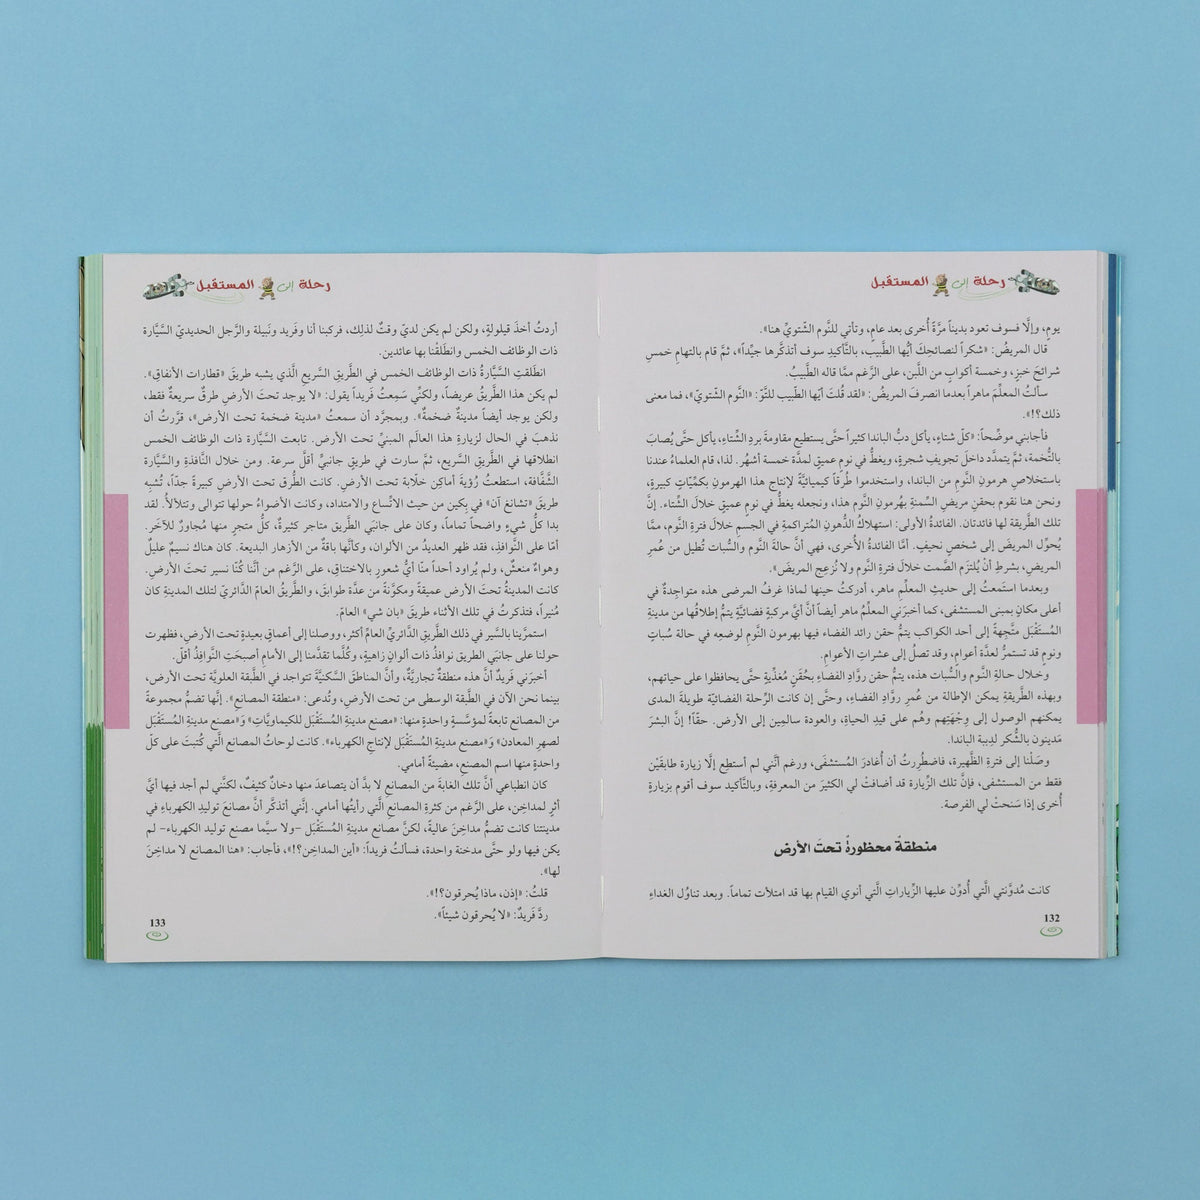 رحلة إلى المستقبل
يومٍ، وإلَّا فسوف تعود بديناً مرَّةً أُخرى بعد عامٍ، وتأتي للنَّوم الشّتويِّ هنا».
قال المريضُ: «شكراً لنصائحِكَ أيُّها الطَّبيب، بالتَّأكيدِ سوف أتذكَّرها جيِّداً»، ثمَّ قام بالتهامِ خمسِ
شرائحَ خبزٍ، وخمسة أكوابٍ من اللَّبن، على الرَّغم ممَّا قاله الطَّبيبُ.
سألتُ المعلِّمَ ماهراً بعدما انصرفَ المريضُ: «لقد قُلتَ أيّها الطَّبيب للتَّوّ: «النَّوم الشّتويّ»، فما معنى
ذلك؟!».
فأجابني موضّحاً: «كلّ شتاءٍ، يأكل دبُّ الباندا كثيراً حتَّى يستطيع مقاومةَ بردِ الشِّتاءِ، يأكل حتَّى يُصابَ
بالتُّخمة، ثمَّ يتمدَّد داخلَ تجويفِ شجرةٍ، ويغطُّ في نومٍ عميقٍ لمدَّة خمسة أشهُر. لذا، قام العلماءُ عندنا
باستخلاصِ هرمونِ النَّومِ من الباندا، واستخدموا طُرقاً كيميائيَّةً لإنتاجِ هذا الهرمونِ بكمِّيّاتٍ كبيرةٍ،
ونحن هنا نقوم بحقنِ مريضِ السِّمنةِ بهُرمونِ النَّومِ هذا، ونجعله يغطُّ في نومٍ عميقٍ خلالَ الشِّتاء. إنَّ
تلك الطَّريقة لها فائدتان. الفائدةُ الأولى: استهلاكُ الدُّهونِ المُتراكمةِ في الجسمِ خلالَ فترةِ النَّوم، ممَّا
يُحوِّل المريضَ إلى شخصٍ نحيفٍ. أمَّا الفائدةُ الأُخرى، فهي أنَّ حالةَ النَّوم والسُّبات تُطيل من عُمرِ
المريضِ، بشرطِ أنْ يُلتزَم الصَّمت خلالَ فترةِ النَّوم ولا تُزعِج المريضَ».
وبعدما استَمعتُ إلى حديثِ المعلِّمِ ماهر، أدركتُ حينها لماذا غرفُ المرضى هذه متواجِدةٌ في
أعلى مكانٍ بمبنى المستشفى، كما أخبَرَني المعلِّمُ ماهر أيضاً أنَّ أيَّ مركبةٍ فضائيَّةٍ يتمُّ إطلاقُها من مدينةِ
المُستَقْبَل متَّجِهةً إلى أحد الكواكب يتمُّ حقن رائد الفضاء فيها بهرمون النَّومِ لوضعِه في حالة سُباتٍ
ونومٍ قد تستمرُّ لعدَّة أعوامٍ، وقد تصلُ إلى عشراتِ الأعوامِ.
وخلالَ حالةِ النَّومِ والسُّبات هذه، يتمُّ حقن روَّادِ الفضاءِ بحُقَنٍ مُغذِّيةٍ حتَّى يحافظوا على حياتهم،
وبهذه الطَّريقةِ يمكن الإطالة من عُمرِ روَّادِ الفضاءِ، وحتَّى إن كانت الرِّحلة الفضائيّة طويلةَ المدى
يمكنهم الوصول إلى وِجْهَتِهم وهُم على قيدِ الحياةِ، والعودة سالِمِين إلى الأرض. حقّاً! إنَّ البشرَ
مَدينون بالشُّكر لدِببة الباندا.
وصَلْنا إلى فترةِ الظَّهيرة، فاضطُرِرتُ أن أُغادرَ المُستَشفى، ورغم أنَّني لم أستطِع إلَّا زيارة طابقَيْن
فقط من المستشفى، فإنَّ تلك الزِّيارة قد أضافَتْ لي الكثيرَ من المعرفةِ، وبالتَّأكيد سوف أقوم بزيارةٍ
أُخرى إذا سَنحتْ لي الفرصة.
منطقةٌ محظورةٌ تحتَ الأرض
كانت مُدوَّنتي الَّتي أدوِّن عليها الزِّياراتِ الَّتي أنوي القيام بها قد امتلأت تماماً. وبعد تناوُل الغداءِ
132
رحلة إلى المستقبل
أردتُ أخذَ قيلولةٍ، ولكن لم يكن لديّ وقتٌ لذلِك، فركبنا أنا وفَريد ونَبيلة والرَّجل الحديديّ السَّيَّارة
ذات الوظائف الخمس وانطلَقْنا بها عائدين.
انطَلقتِ السَّيَّارةُ ذات الوظائفِ الخمس في الطَّريقِ السَّريعِ الَّذي يشبه طريقَ «قطارات الأنفاق».
لم يكن هذا الطَّريقُ عريضاً، ولكنِّي سَمِعتُ فَريداً يقول: «لا يوجد تحتَ الأرضِ طرقٌ سريعةٌ فقط،
ولكن يوجد أيضاً مدينةٌ ضخمةٌ». وبمجرَّد أن سمعتُ «مدينة ضخمة تحت الأرض»، قرَّرتُ أن
نذهبَ في الحال لزيارةِ هذا العالَم المبنيِّ تحت الأرض. تابعت السَّيَّارة ذات الوظائف الخمس
انطلاقها في الطَّريق السَّريع، ثمَّ سارت في طريقٍ جانبيٍّ أقلَّ سرعة. ومن خلال النَّافذةِ والسَّيَّارة
الشَّفَّافة، استطعتُ رُؤيةَ أماكِن خلّابة تحت الأرض. كانت الطُّرق تحت الأرضِ كبيرةً جدّاً، تُشبِه
طريقَ «تشانغ آن» في بِكين من حيث الاتِّساع والامتداد، وكانت الأضواءُ حولها تتوالى وتتلألأُ. لقد
بدا كلُّ شيءٍ واضحاً تماماً، وكان على جانبَي الطَّريقِ متاجر كثيرةٌ، كلُّ متجرٍ منها مُجاورٌ للآخَر.
أمَّا على النَّوافذِ، فقد ظهر العديدُ من الألوان، وكأنَّها باقةٌ من الأزهار البديعة. كان هناك نسيمٌ عليلٌ
وهواءٌ منعشٌ، ولم يُراود أحداً منَّا أيُّ شعورٍ بالاختناقِ، على الرَّغم من أنَّنا كُنَّا نسير تحتَ الأرضِ.
كانت المدينةُ تحتَ الأرضِ عميقةً ومكوَّنةً من عدَّة طوابقَ، والطَّريقُ العامُّ الدَّائريّ لتلك المدينةِ كان
مُنيراً، فتذكرتُ في تلك الأثناء طريقَ «بان شي» العامّ.
استمرَّينا بالسَّير في ذلك الطَّريقِ الدَّائريِّ العامِّ أكثر، ووصلنا إلى أعماقٍ بعيدةٍ تحت الأرضِ، فظهرت
حولنا على جانبَي الطريق نوافذُ ذات ألوانٍ زاهيةٍ، وكُلَّما تقدَّمنا إلى الأمامِ أصبحَتِ النَّوافذُ أقلّ.
أخبرَني فَريدٌ أنَّ هذه منطقةٌ تجاريَّةٌ، وأنَّ المناطقَ السَّكنيَّةَ تتواجد في الطَّبقة العلويَّة تحت الأرض،
بينما نحن الآن في الطَّبقة الوسطى من تحت الأرضِ، وتُدعى: «منطقة المصانع». إنَّها تضمُّ مجموعةً
من المصانع تابعةً لمؤسَّسةٍ واحدةٍ منها: «مصنع مدينةِ المُستَقْبَل للكيماويَّاتِ» وَ«مصنع مدينةِ المُستَقْبَل
لصهرِ المعادن» وَ«مصنع مدينةِ المُستَقْبَل لإنتاجِ الكهرباء». كانت لوحاتُ المصانعِ الَّتي كُتبتْ على كلِّ
واحدةٍ منها اسم المصنعِ، مضيئةً أمامي.
كان انطباعي أنَّ تلك الغابةَ من المصانعِ لا بدَّ أن يتصاعدَ منها دخانٌ كثيفٌ، لكنَّني لم أجد فيها أيَّ
أثرٍ لمداخِن، على الرَّغم من كثرةِ المصانعِ الَّتي رأيتُها أمامي. إنَّني أتذكَّرُ أنَّ مصانعَ توليدِ الكهرباءِ في
مدينتنا كانت تضمُّ مداخِنَ عاليةً، لكنَّ مصانع مدينةِ المُستَقْبَل -ولا سيَّما مصنع توليد الكهرباء- لم
يكن فيها ولو حتَّى مدخنة واحدة، فسألتُ فَريداً: «أين المداخِن؟!»، فأجاب: «هنا المصانع لا مداخِنَ
لها».
قلتُ: «إذن، ماذا يُحرقون؟!».
ردَّ فَريدٌ: «لا يُحرقون شيئاً».
133